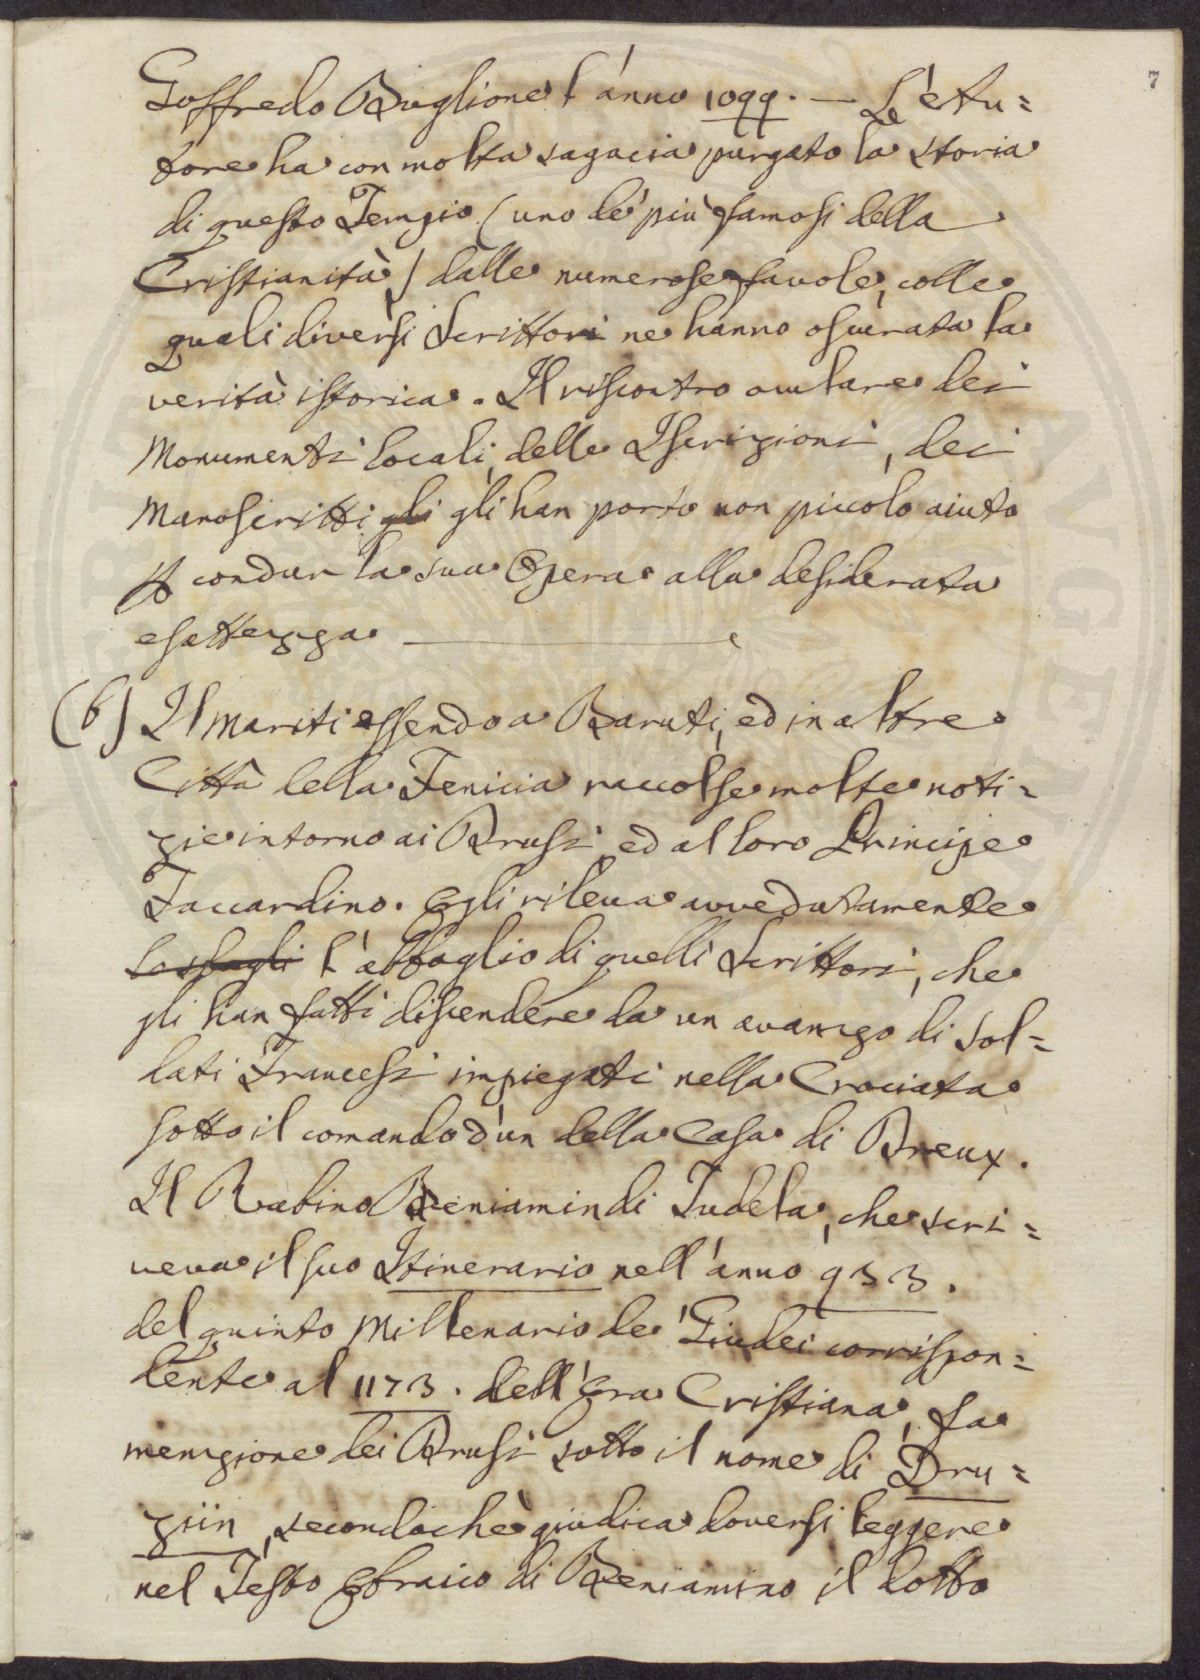 7
Goffredo Buglione l'anno 1099. — L'Au=
tore ha con molta sagacia purgato la storia
di questo Tempio (uno de' più famosi della
Cristianità) dalle numerose favole, colle
quali diversi Scrittori ne hanno oscurata la
verità istorica. Il riscontro oculare dei
Monumenti locali, delle Iscrizioni, dei
Manoscritti gli gli han porto non piccolo aiuto
condur la sua Opera alla desiderata
esattezza.
(6) Il Mariti essendo a Baruti, ed in altre
Città della Fenicia raccolse molte noti=
zie intorno ai Drusi, ed al loro Principe
Faccardino. Egli rileva avvedutamente
l'abbaglio di quelli Scrittori, che
gli han fatti discendere da un avanzo di Sol=
dati Francesi impiegati nella Crociata
sotto il comando d'un della Casa di Dreux.
Il Rabino Beniamin di Tudela, che scri=
veva il suo Itinerario nell'anno 933.
del quinto Millenario de' Giudei corrispon=
dente al 1173. dell'Era Cristiana, fa
menzione dei Drusi sotto il nome di Dru=
ziin, secondochè giudica doversi leggere
nel Testo Ebraico di Beniamino il dotto